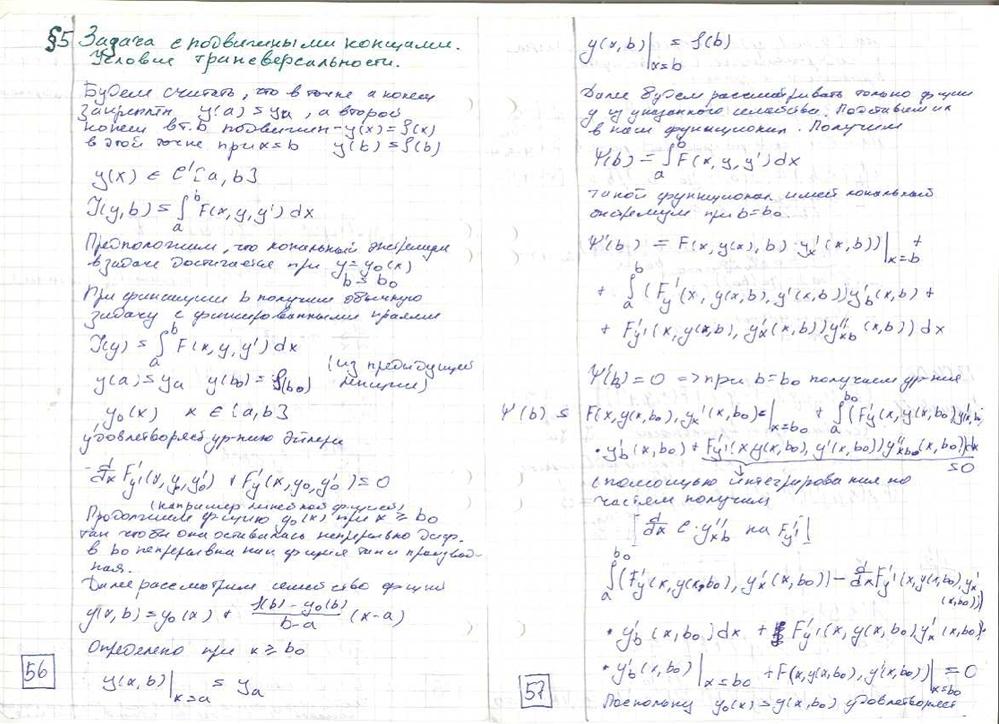 §5 Задача с подвижными концами.
Условие трансверсальности.
Будем считать, что в точке a конец
закреплён y(a) = yₐ, а второй
конец в т. b подвижен – y(x) = f(x)
в этой точке при x=b y(b) = f(b)
y(x) ∈ C'[a, b]
J(y, b) = ∫ₐᵇ F(x, y, y') dx
Предположим, что локальный экстремум
в задаче достигается при y = y₀(x)
b = b₀
При фиксации b получим обычную
задачу с фиксированными краями
J(y) = ∫ₐᵇ F(x, y, y') dx
y(a) = yₐ y(b₀) = f(b₀) (из предыдущей
лекции)
y₀(x) x ∈ [a, b]
удовлетворяет ур-нию Эйлера
-d/dx F'y'(x, y₀, y₀') + F'y(x, y₀, y₀') = 0
(например линейной ф-цией)
Продолжим ф-цию y₀(x) при x ≥ b₀
так чтобы она оставалась непрерывно диф.
в b₀ непрерывна как ф-ция так и производ-
ная.
Далее рассмотрим семейство ф-ций
y(x, b) = y₀(x) + (f(b) - y₀(b))/(b-a) (x-a)
Определено при x ≥ b₀
y(x, b)|ₓ₌ₐ = yₐ
56
y(x, b)|x=b = f(b)
Далее будем рассматривать только ф-ции
y из указанного семейства. Подставим их
в наш функционал. Получим
Ψ(b) = ∫ₐᵇ F(x, y, y') dx
такой функционал имеет локальный
экстремум при b=b₀
Ψ'(b) = F(x, y(x), b) · y'x (x, b))|x=b +
+ ∫ₐᵇ (F'y (x, y(x,b), y'(x,b)) y'b(x,b) +
+ F'y'(x, y(x,b), y'x(x,b)) y''xb (x,b)) dx
Ψ'(b) = 0 => при b=b₀ получаем ур-ние
Ψ'(b) = F(x, y(x,b₀), y'x(x,b₀)|x=b₀ + ∫ₐᵇ⁰ (F'y(x, y(x,b₀), y'(x,b₀)
· y'b(x,b₀) + F'y'(x, y(x,b₀), y'(x,b₀)) y''xb₀(x,b₀)) dx
= 0
с помощью интегрирования по
частям получим
[d/dx с y''xb на F'y']
∫ₐᵇ⁰ (F'y(x, y(x,b₀), y'x(x,b₀)) - d/dx F'y'(x, y(x,b₀), y'x
(x,b₀)))
· y'b (x,b₀) dx + F'y'(x, y(x,b₀) y'x(x,b₀)) ·
· y'b(x,b₀)|x=b₀ + F(x, y(x,b₀), y'(x,b₀))|x=b₀ = 0
Поскольку y₀(x) = y(x,b₀) удовлетворяет
57